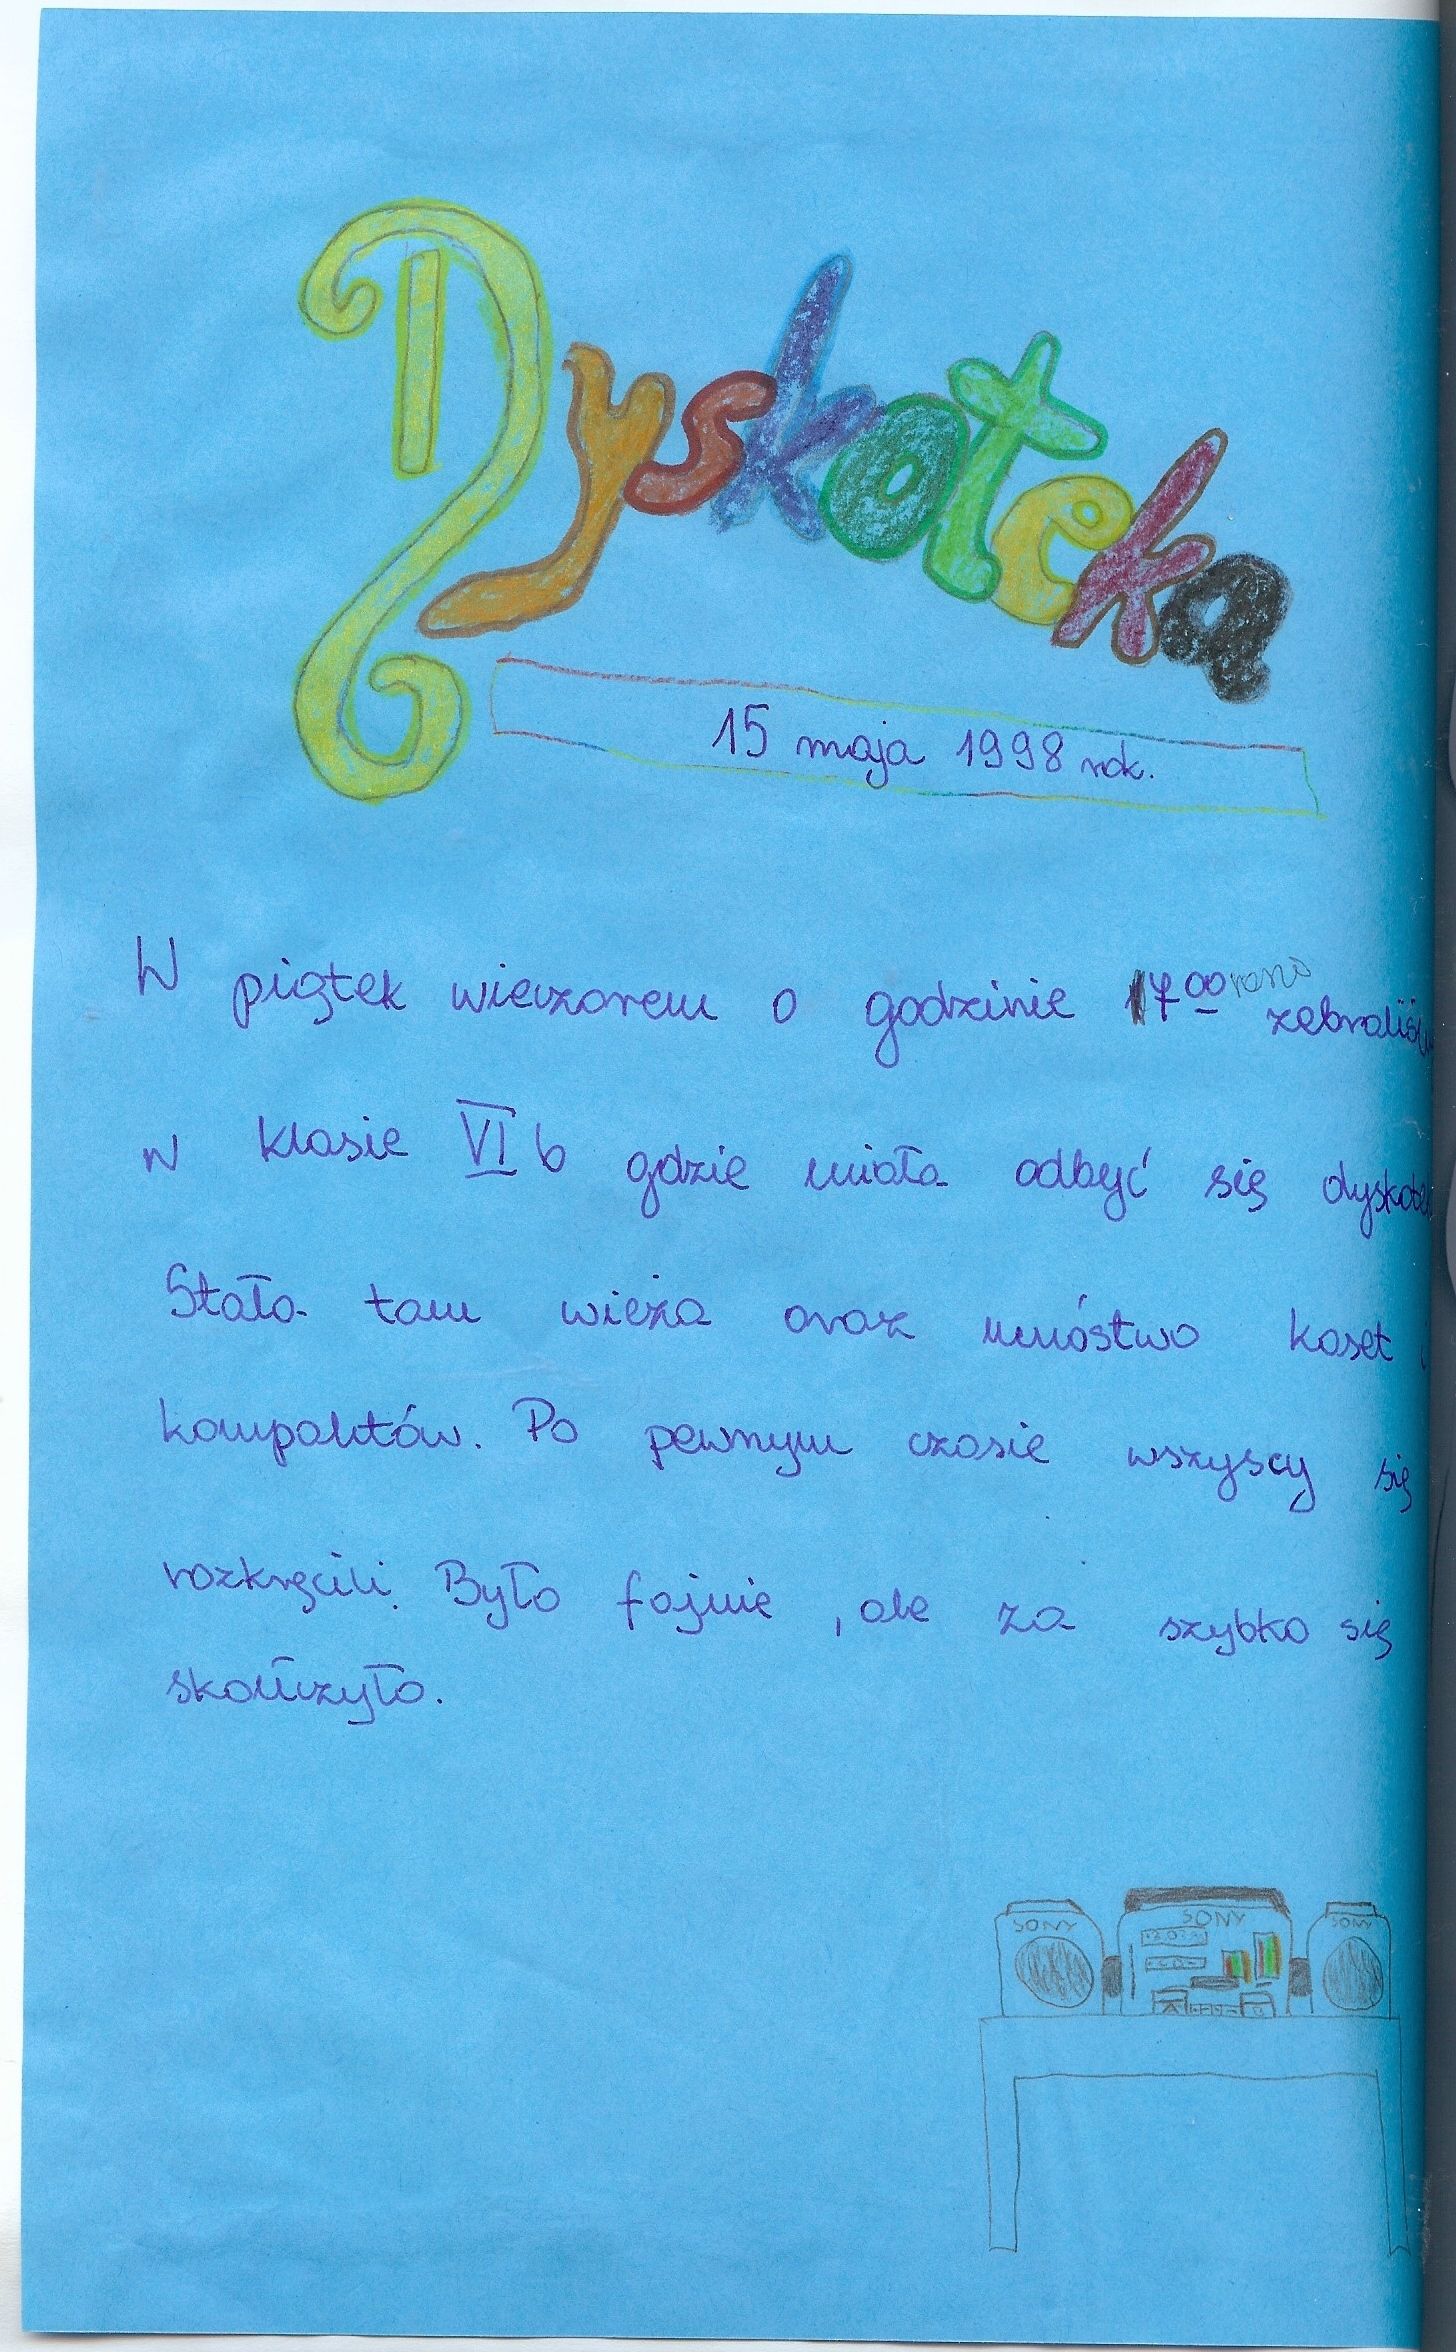 Dyskoteka
15 maja 1998 rok.
W piątek wieczorem o godzinie 17⁰⁰ rano zebraliśm
w klasie VI b gdzie miała odbyć się dyskote
Stała tam wieża oraz mnóstwo kaset i
kompaktów. Po pewnym czasie wszyscy się
rozkręcili. Było fajnie, ale za szybko się
skończyło.
SONY SONY SONY